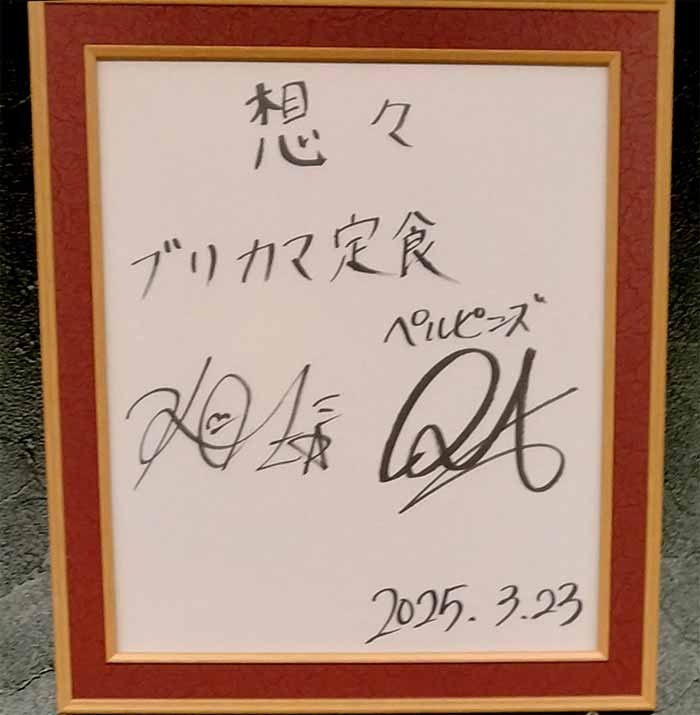 想々
ブリカマ定食
ペルピンズ
2025.3.23